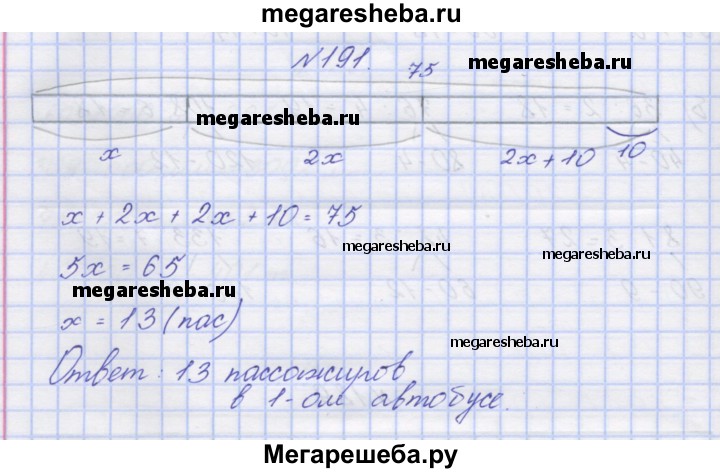 megaresheba.ru
N191.
75
megaresheba.ru
megaresheba.ru
x 2x 2x+10 10
x + 2x + 2x + 10 = 75
megaresheba.ru
megaresheba.ru
5x = 65
megaresheba.ru
x = 13 (пас)
megaresheba.ru
Ответ: 13 пассажиров
в 1-ом автобусе.
Мегарешеба.ру